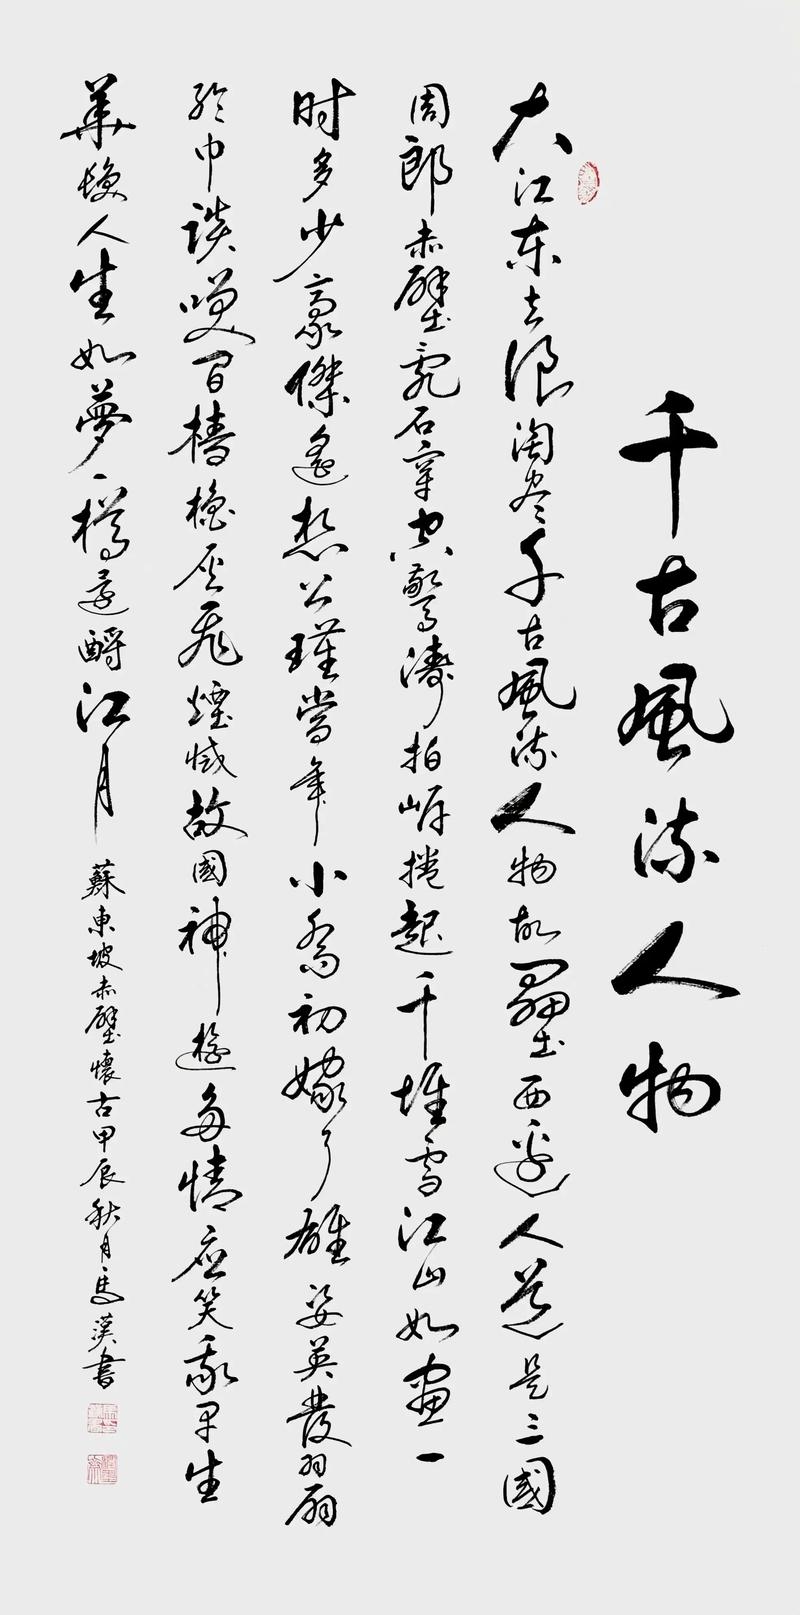 千古風流人物
大江东去浪淘尽千古風流人物故壘西邊人道是三國
周郎赤壁亂石穿空驚濤拍岸捲起千堆雪江山如畫一
时多少豪傑遙想公瑾當年小喬初嫁了雄姿英發羽扇
綸巾談笑間檣櫓灰飛煙滅故國神遊多情應笑我早生
華髮人生如夢一樽還酹江月
蘇東坡赤壁懷古甲辰秋月馬漢書